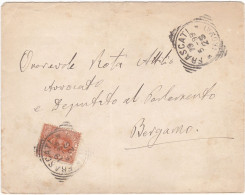 FRASCATI
Onorevole Rota Attilio
Avvocato
e Deputato al Parlamento
Bergamo
FRASCATI